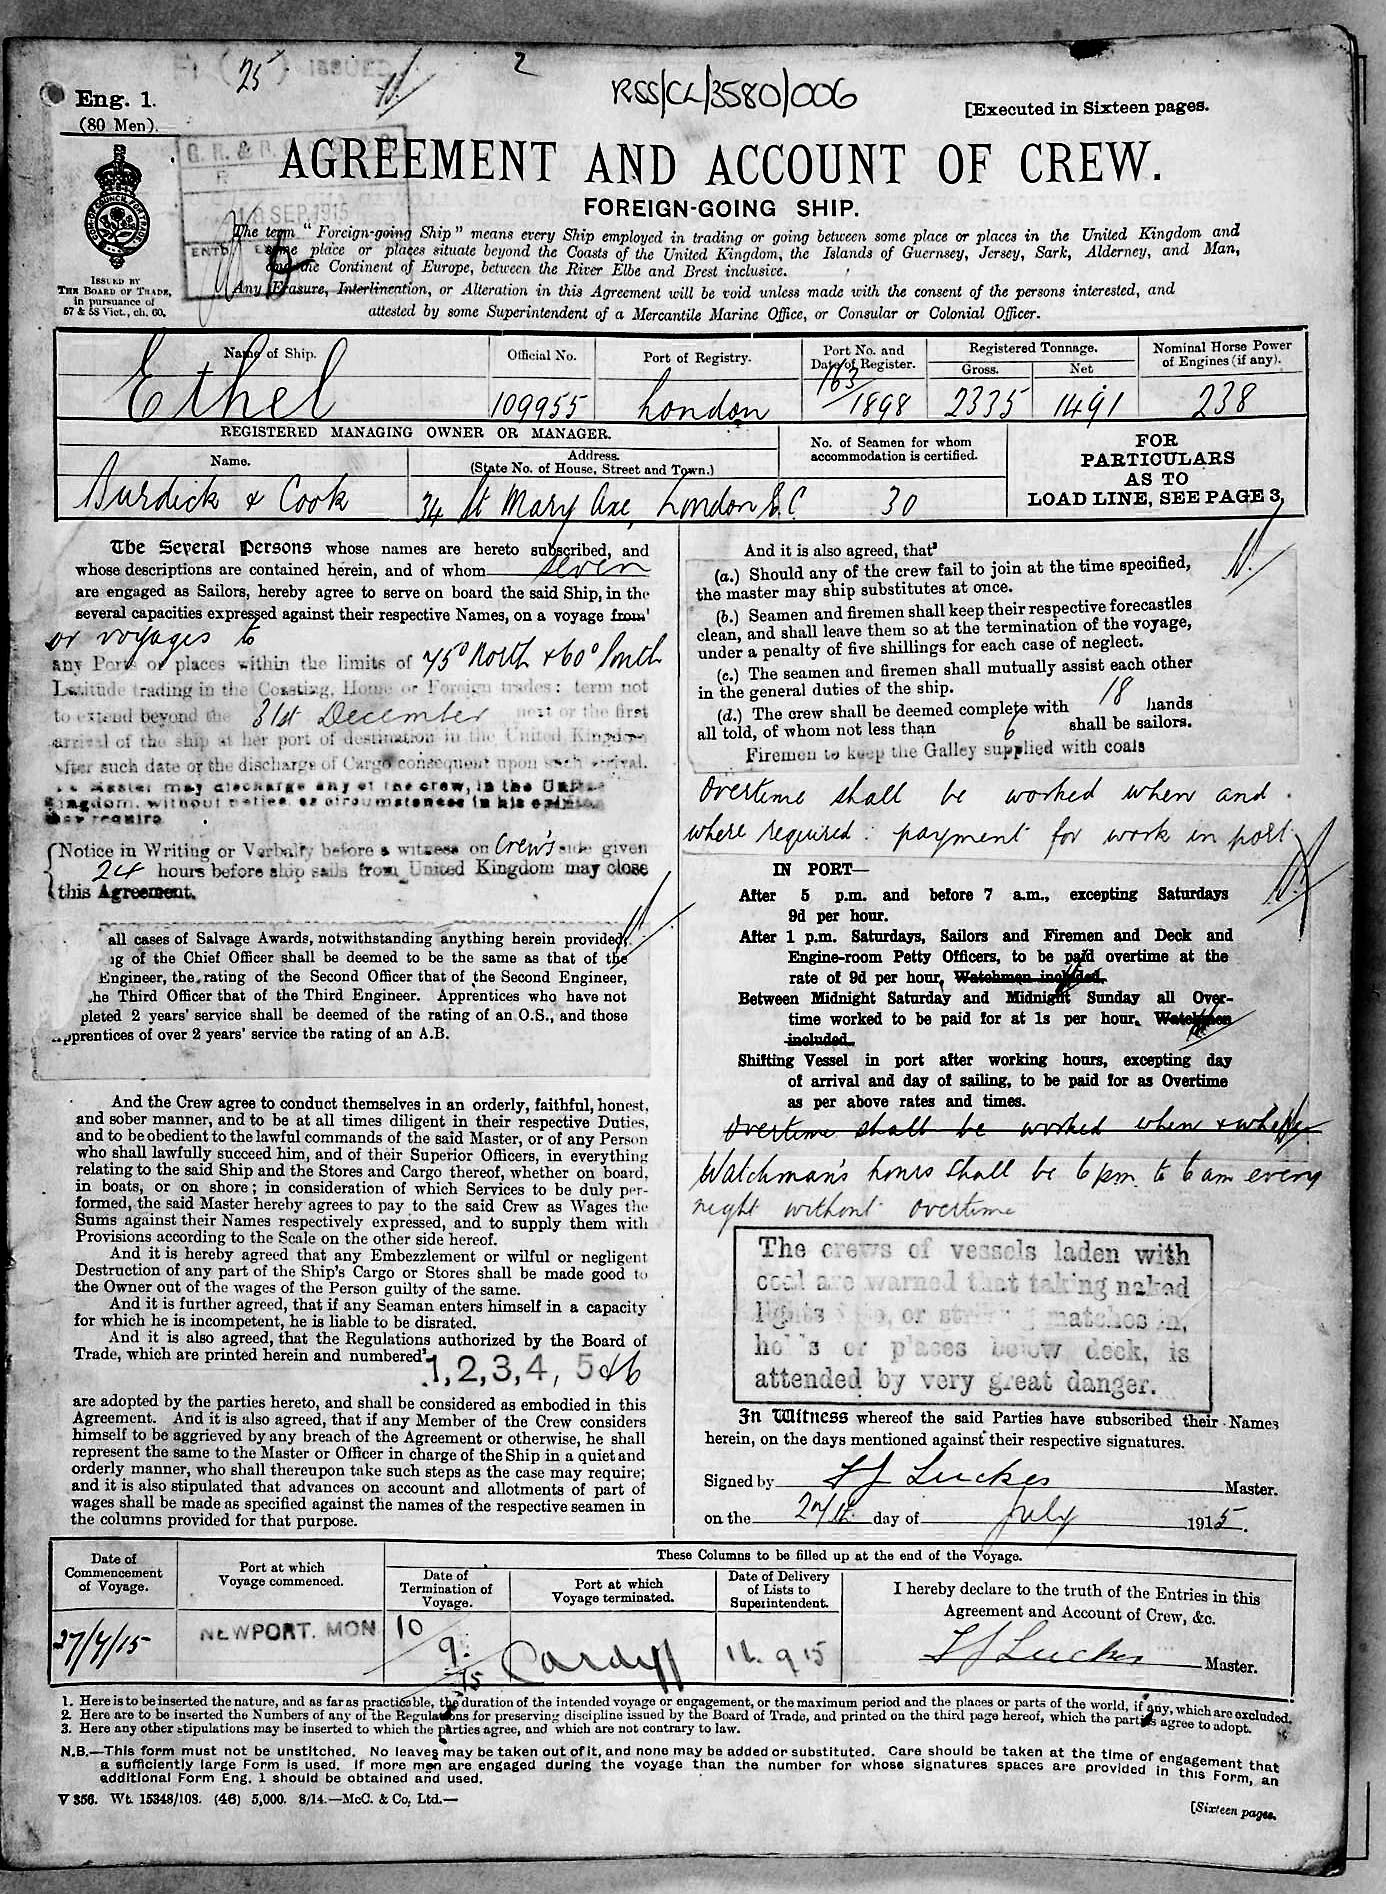 25 ISSUED
2
RSS/CL/3580/006
Eng. 1.
(80 Men).
[Executed in Sixteen pages.
G. R. &
SEP 1915
AGREEMENT AND ACCOUNT OF CREW.
FOREIGN-GOING SHIP.
The term "Foreign-going Ship" means every Ship employed in trading or going between some place or places in the United Kingdom and
some place or places situate beyond the Coasts of the United Kingdom, the Islands of Guernsey, Jersey, Sark, Alderney, and Man,
and the Continent of Europe, between the River Elbe and Brest inclusive.
Any Erasure, Interlineation, or Alteration in this Agreement will be void unless made with the consent of the persons interested, and
attested by some Superintendent of a Mercantile Marine Office, or Consular or Colonial Officer.
ISSUED BY
THE BOARD OF TRADE,
in pursuance of
57 & 58 Vict., ch. 60.
Name of Ship.
Official No.
Port of Registry.
Port No. and
Date of Register.
Registered Tonnage.
Gross.
Net
Nominal Horse Power
of Engines (if any).
Ethel
109955
London
163/1898
2335
1491
238
REGISTERED MANAGING OWNER OR MANAGER.
Name.
Address.
(State No. of House, Street and Town.)
No. of Seamen for whom
accommodation is certified.
FOR
PARTICULARS
AS TO
LOAD LINE, SEE PAGE 3,
Burdick & Cook
34 St Mary Axe, London E.C.
30
The Several Persons whose names are hereto subscribed, and
whose descriptions are contained herein, and of whom seven
are engaged as Sailors, hereby agree to serve on board the said Ship, in the
several capacities expressed against their respective Names, on a voyage from¹
or voyages to
any Ports or places within the limits of 75° North & 60° South
Latitude trading in the Coasting, Home or Foreign trades: term not
to extend beyond the 31st December next or the first
arrival of the ship at her port of destination in the United Kingdom
after such date or the discharge of Cargo consequent upon such arrival.
Master may discharge any of the crew, in the United
Kingdom, without notice, as circumstances in his opinion
may require
Notice in Writing or Verbally before a witness on Crew's side given
24 hours before ship sails from United Kingdom may close
this Agreement.
all cases of Salvage Awards, notwithstanding anything herein provided,
of the Chief Officer shall be deemed to be the same as that of the
Engineer, the rating of the Second Officer that of the Second Engineer,
the Third Officer that of the Third Engineer. Apprentices who have not
pleted 2 years' service shall be deemed of the rating of an O.S., and those
pprentices of over 2 years' service the rating of an A.B.
And the Crew agree to conduct themselves in an orderly, faithful, honest,
and sober manner, and to be at all times diligent in their respective Duties,
and to be obedient to the lawful commands of the said Master, or of any Person
who shall lawfully succeed him, and of their Superior Officers, in everything
relating to the said Ship and the Stores and Cargo thereof, whether on board,
in boats, or on shore; in consideration of which Services to be duly per-
formed, the said Master hereby agrees to pay to the said Crew as Wages the
Sums against their Names respectively expressed, and to supply them with
Provisions according to the Scale on the other side hereof.
And it is hereby agreed that any Embezzlement or wilful or negligent
Destruction of any part of the Ship's Cargo or Stores shall be made good to
the Owner out of the wages of the Person guilty of the same.
And it is further agreed, that if any Seaman enters himself in a capacity
for which he is incompetent, he is liable to be disrated.
And it is also agreed, that the Regulations authorized by the Board of
Trade, which are printed herein and numbered²
1, 2, 3, 4, 5 & 6
are adopted by the parties hereto, and shall be considered as embodied in this
Agreement. And it is also agreed, that if any Member of the Crew considers
himself to be aggrieved by any breach of the Agreement or otherwise, he shall
represent the same to the Master or Officer in charge of the Ship in a quiet and
orderly manner, who shall thereupon take such steps as the case may require;
and it is also stipulated that advances on account and allotments of part of
wages shall be made as specified against the names of the respective seamen in
the columns provided for that purpose.
And it is also agreed, that³
(a.) Should any of the crew fail to join at the time specified,
the master may ship substitutes at once.
(b.) Seamen and firemen shall keep their respective forecastles
clean, and shall leave them so at the termination of the voyage,
under a penalty of five shillings for each case of neglect.
(c.) The seamen and firemen shall mutually assist each other
in the general duties of the ship.
(d.) The crew shall be deemed complete with 18 hands
all told, of whom not less than 6 shall be sailors.
Firemen to keep the Galley supplied with coals
Overtime shall be worked when and
where required: payment for work in port
IN PORT—
After 5 p.m. and before 7 a.m., excepting Saturdays
9d per hour.
After 1 p.m. Saturdays, Sailors and Firemen and Deck and
Engine-room Petty Officers, to be paid overtime at the
rate of 9d per hour, Watchmen included.
Between Midnight Saturday and Midnight Sunday all Over-
time worked to be paid for at 1s per hour. Watchmen
included.
Shifting Vessel in port after working hours, excepting day
of arrival and day of sailing, to be paid for as Overtime
as per above rates and times.
Overtime shall be worked when & where
Watchman's hours shall be 6 pm to 6 am every
night without overtime
The crews of vessels laden with
coal are warned that taking naked
lights or matches in,
holds or places below deck, is
attended by very great danger.
In Witness whereof the said Parties have subscribed their Names
herein, on the days mentioned against their respective signatures.
Signed by Luckes Master.
on the 27th day of July 1915.
Date of
Commencement
of Voyage.
Port at which
Voyage commenced.
These Columns to be filled up at the end of the Voyage.
Date of
Termination of
Voyage.
Port at which
Voyage terminated.
Date of Delivery
of Lists to
Superintendent.
I hereby declare to the truth of the Entries in this
Agreement and Account of Crew, &c.
27/7/15
NEWPORT. MON
10/9/15
Cardiff
11. 9 15
Luckes Master.
1. Here is to be inserted the nature, and as far as practicable, the duration of the intended voyage or engagement, or the maximum period and the places or parts of the world, if any, which are excluded.
2. Here are to be inserted the Numbers of any of the Regulations for preserving discipline issued by the Board of Trade, and printed on the third page hereof, which the parties agree to adopt.
3. Here any other stipulations may be inserted to which the parties agree, and which are not contrary to law.
N.B.—This form must not be unstitched. No leaves may be taken out of it, and none may be added or substituted. Care should be taken at the time of engagement that
a sufficiently large Form is used. If more men are engaged during the voyage than the number for whose signatures spaces are provided in this Form, an
additional Form Eng. 1 should be obtained and used.
V 356. Wt. 15348/108. (46) 5,000. 8/14.—McC. & Co, Ltd.—
[Sixteen pages.